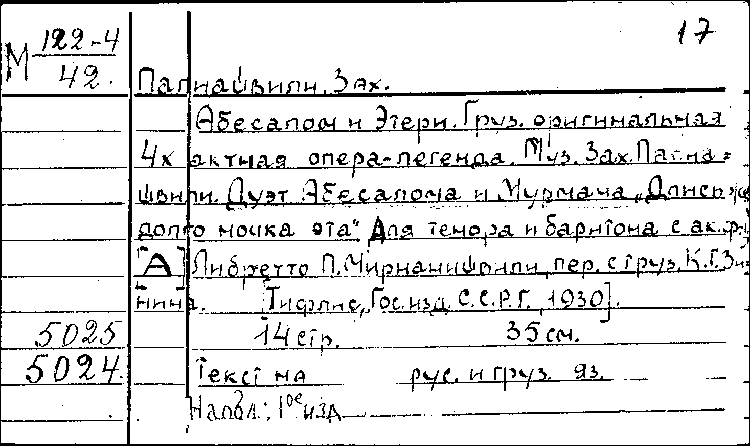 17
М 122-4
42.
Палиашвили, Зах.
Абесалом и Этери. Груз. оригинальная
4х актная опера-легенда. Муз. Зах. Палиа=
швили. Дуэт Абесалома и Мурмана „Длись
долго ночка эта" Для тенора и баритона с ак. ф-п
[А] Либретто П. Мирианишвили, пер. с груз. К.Г. Зи-
нина. [Тифлис, Гос. изд. С.С.Р.Г., 1930].
5025 14 стр. 35 см.
5024. Текст на рус. и груз. яз.
Напеч.: 1ое изд.